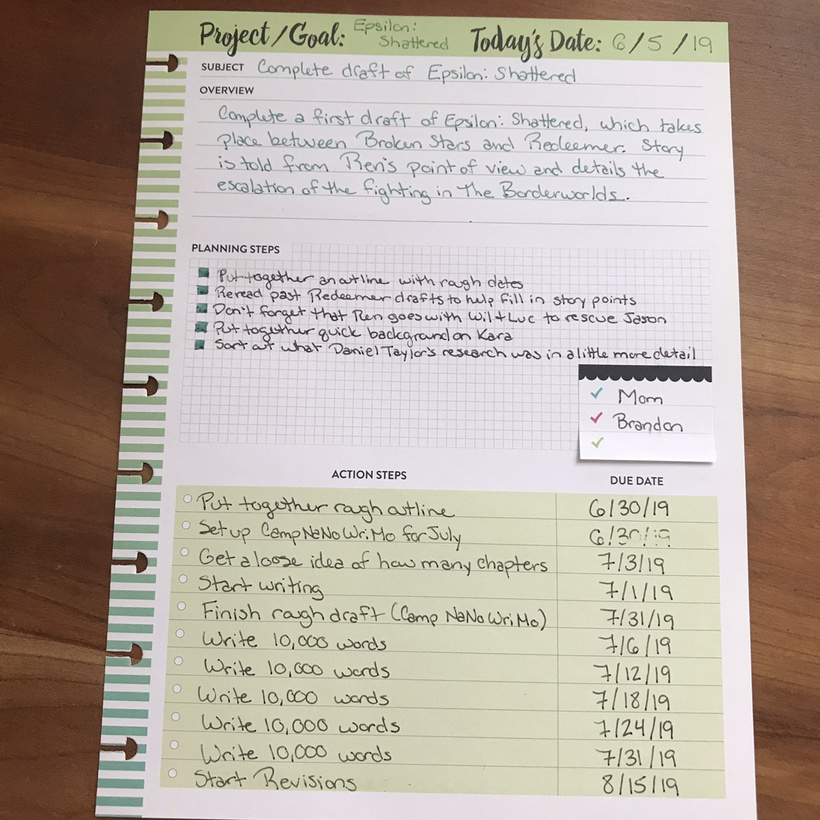 Project/Goal: Epsilon: Shattered Today's Date: 6/5/19
SUBJECT Complete draft of Epsilon: Shattered
OVERVIEW
Complete a first draft of Epsilon: Shattered, which takes
place between Broken Stars and Redeemer. Story
is told from Ren's point of view and details the
escalation of the fighting in The Borderworlds.
PLANNING STEPS
Put together an outline with rough dates
Reread past Redeemer drafts to help fill in story points
Don't forget that Ren goes with Wil + Luc to rescue Jason
Put together quick background on Kara
Sort out what Daniel Taylor's research was in a little more detail
Mom
Brandon
ACTION STEPS DUE DATE
Put together rough outline 6/30/19
Set up CampNaNoWriMo for July 6/30/19
Get a loose idea of how many chapters 7/3/19
Start writing 7/1/19
Finish rough draft (Camp NaNoWriMo) 7/31/19
Write 10,000 words 7/6/19
Write 10,000 words 7/12/19
Write 10,000 words 7/18/19
Write 10,000 words 7/24/19
Write 10,000 words 7/31/19
Start Revisions 8/15/19